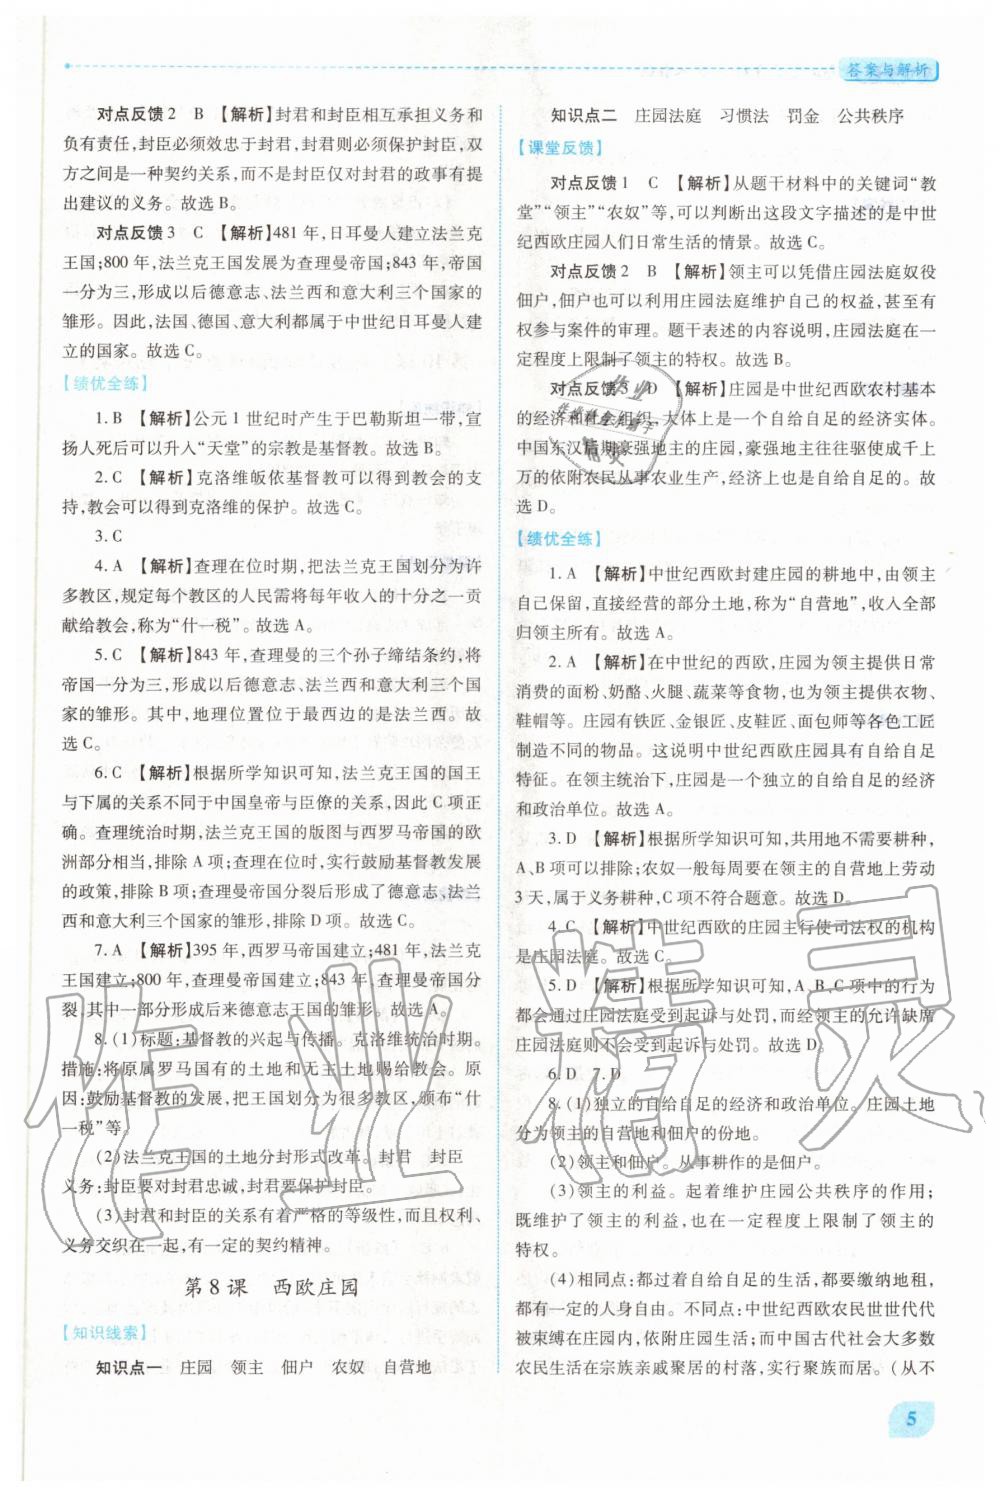 答案与解析
对点反馈 2　B　【解析】封君和封臣相互承担义务和
负有责任,封臣必须效忠于封君,封君则必须保护封臣,双
方之间是一种契约关系,不是封臣仅对封君的政事有提
出建议的义务。故选 B。
对点反馈 3　C　【解析】481 年,日耳曼人建立法兰克
王国;800 年,法兰克王国发展为查理曼帝国;843 年,帝国
一分为三,形成以后德意志、法兰西和意大利三个国家的
雏形。因此,法国、德国、意大利都属于中世纪日耳曼人建
立的国家。故选 C。
【绩优全练】
1. B　【解析】公元 1 世纪时产生于巴勒斯坦一带,宣
扬人死后可以升入“天堂”的宗教是基督教。故选 B。
2. C　【解析】克洛维皈依基督教可以得到教会的支
持,教会可以得到克洛维的保护。故选 C。
3. C
4. A　【解析】查理在位时期,把法兰克王国划分为许
多教区,规定每个教区的人民需将每年收入的十分之一贡
献给教会,称为“什一税”。故选 A。
5. C　【解析】843 年,查理曼的三个孙子缔结条约,将
帝国一分为三,形成以后德意志、法兰西和意大利三个国
家的雏形。其中,地理位置位于最西边的是法兰西。故
选 C。
6. C　【解析】根据所学知识可知,法兰克王国的国王
与下属的关系不同于中国皇帝与臣僚的关系,因此 C 项正
确。查理统治时期,法兰克王国的版图与西罗马帝国的欧
洲部分相当,排除 A 项;查理在位时,实行鼓励基督教发展
的政策,排除 B 项;查理曼帝国分裂后形成了德意志、法兰
西和意大利三个国家的雏形,排除 D 项。故选 C。
7. A　【解析】395 年,西罗马帝国建立;481 年,法兰克
王国建立;800 年,查理曼帝国建立;843 年,查理曼帝国分
裂,其中一部分形成后来德意志王国的雏形。故选 A。
8. (1)标题:基督教的兴起与传播。克洛维统治时期。
措施:将原属罗马国有的土地和无主土地赐给教会。原
因:鼓励基督教的发展,把王国划分为很多教区,颁布“什
一税”等。
(2)法兰克王国的土地分封形式改革。封君　封臣
义务:封臣要对封君忠诚,封君要保护封臣。
(3)封君和封臣的关系有着严格的等级性,而且权利、
义务交织在一起,有一定的契约精神。
第 8 课　西欧庄园
【知识线索】
知识点一　庄园　领主　佃户　农奴　自营地
知识点二　庄园法庭　习惯法　罚金　公共秩序
【课堂反馈】
对点反馈 1　C　【解析】从题干材料中的关键词“教
堂”“领主”“农奴”等,可以判断出这段文字描述的是中世
纪西欧庄园人们日常生活的情景。故选 C。
对点反馈 2　B　【解析】领主可以凭借庄园法庭奴役
佃户,佃户也可以利用庄园法庭维护自己的权益,甚至有
权参与案件的审理。题干表述的内容说明,庄园法庭在一
定程度上限制了领主的特权。故选 B。
对点反馈 3　D　【解析】庄园是中世纪西欧农村基本
的经济和社会组织,大体上是一个自给自足的经济实体。
中国东汉后期豪强地主的庄园,豪强地主往往驱使成千上
万的依附农民从事农业生产,也是自给自足的。故
选 D。
【绩优全练】
1. A　【解析】中世纪西欧封建庄园的耕地中,由领主
自己保留,直接经营的部分土地,称为“自营地”,收入全部
归领主所有。故选 A。
2. A　【解析】在中世纪的西欧,庄园为领主提供日常
消费的面粉、奶酪、火腿、蔬菜等食物,也为领主提供衣物、
鞋帽等。庄园有铁匠、金银匠、皮鞋匠、面包师等各色工匠
制造不同的物品。这说明中世纪西欧庄园具有自给自足
特征。在领主统治下,庄园是一个独立的自给自足的经济
和政治单位。故选 A。
3. D　【解析】根据所学知识可知,共用地不需要耕种,
A、B 项可以排除;农奴一般每周要在领主的自营地上劳动
3 天,属于义务耕种,C 项不符合题意。故选 D。
4. C　【解析】中世纪西欧的庄园主行使司法权的机构
是庄园法庭。故选 C。
5. D　【解析】根据所学知识可知,A、B、C 项中的行为
都会通过庄园法庭受到起诉与处罚,而经领主的允许缺席
庄园法庭则不会受到起诉与处罚。故选 D。
6. D　7. D
8. (1)独立的自给自足的经济和政治单位。庄园土地
分为领主的自营地和佃户的份地。
(2)领主和佃户。从事耕作的是佃户。
(3)领主的利益。起着维护庄园公共秩序的作用;
既维护了领主的利益,也在一定程度上限制了领主的
特权。
(4)相同点:都过着自给自足的生活,都要缴纳地租,
都有一定的人身自由。不同点:中世纪西欧农民世世代代
被束缚在庄园,依附庄园生活;而中国古代社会大多数
农民生活在宗族亲戚聚居的村落,实行聚族而居。(从不
5
作业精灵